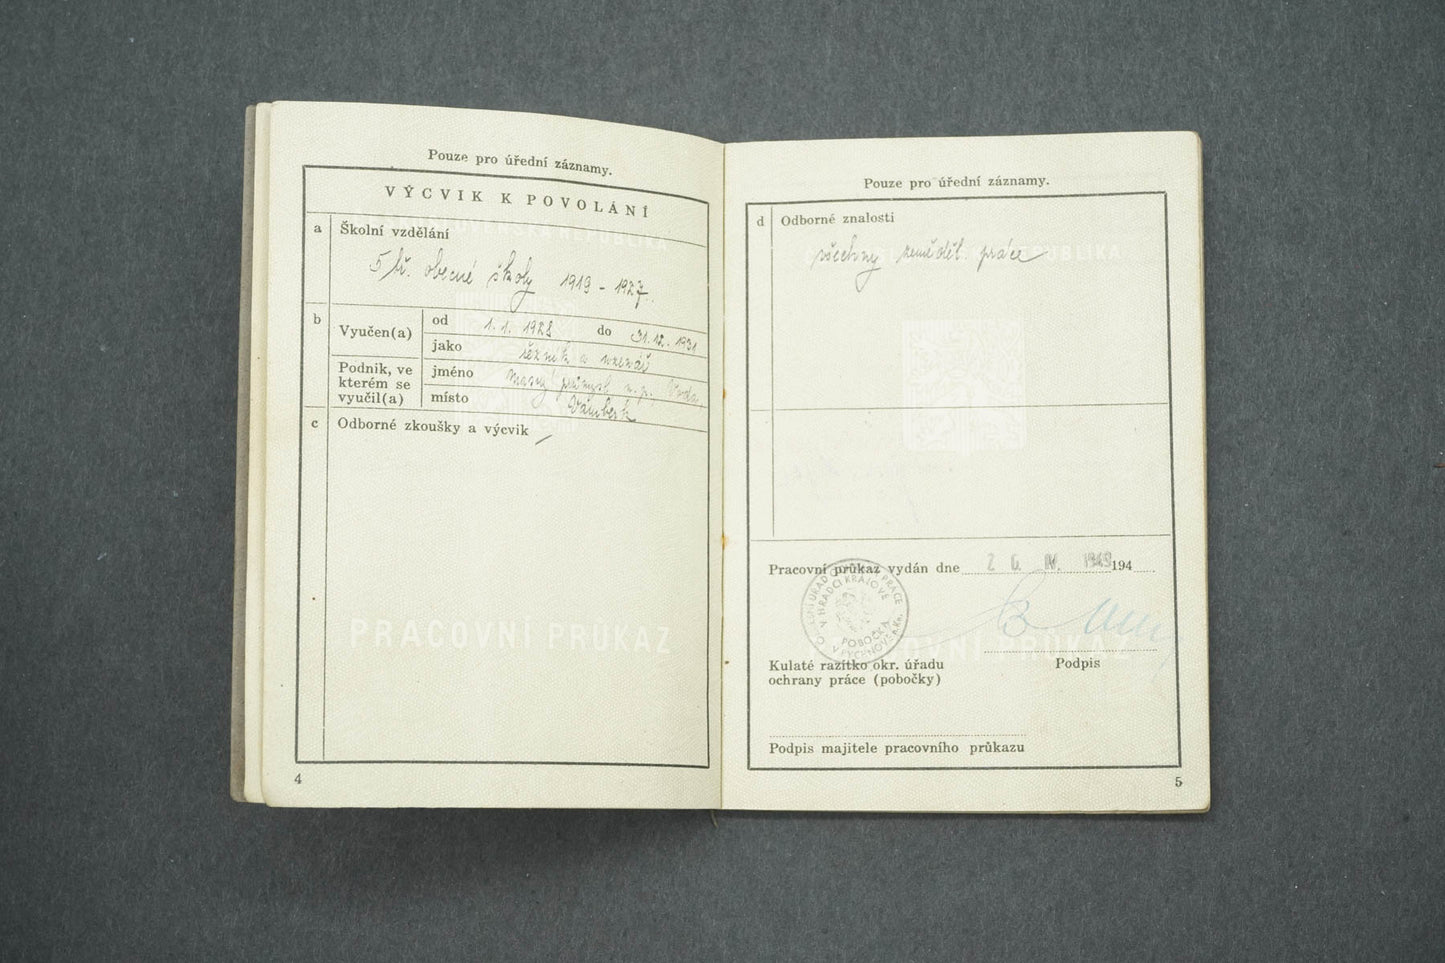 Pouze pro úřední záznamy.
VÝCVIK K POVOLÁNÍ
a Školní vzdělání
5 tř. obecné školy 1919 - 1927.
b Vyučen(a) od 1. 1. 1928 do 31. 12. 1931
jako řezník a uzenář
Podnik, ve kterém se vyučil(a)
jméno masný průmysl n. p.
místo Vamberk
c Odborné zkoušky a výcvik
PRACOVNÍ PRŮKAZ
4
Pouze pro úřední záznamy.
d Odborné znalosti
všechny zeměděl. práce
Pracovní průkaz vydán dne 26. IV. 194
V HRADCI KRÁLOVÉ
POBOČKA
Kulaté razítko okr. úřadu
ochrany práce (pobočky)
Podpis
PRACOVNÍ PRŮKAZ
Podpis majitele pracovního průkazu
5